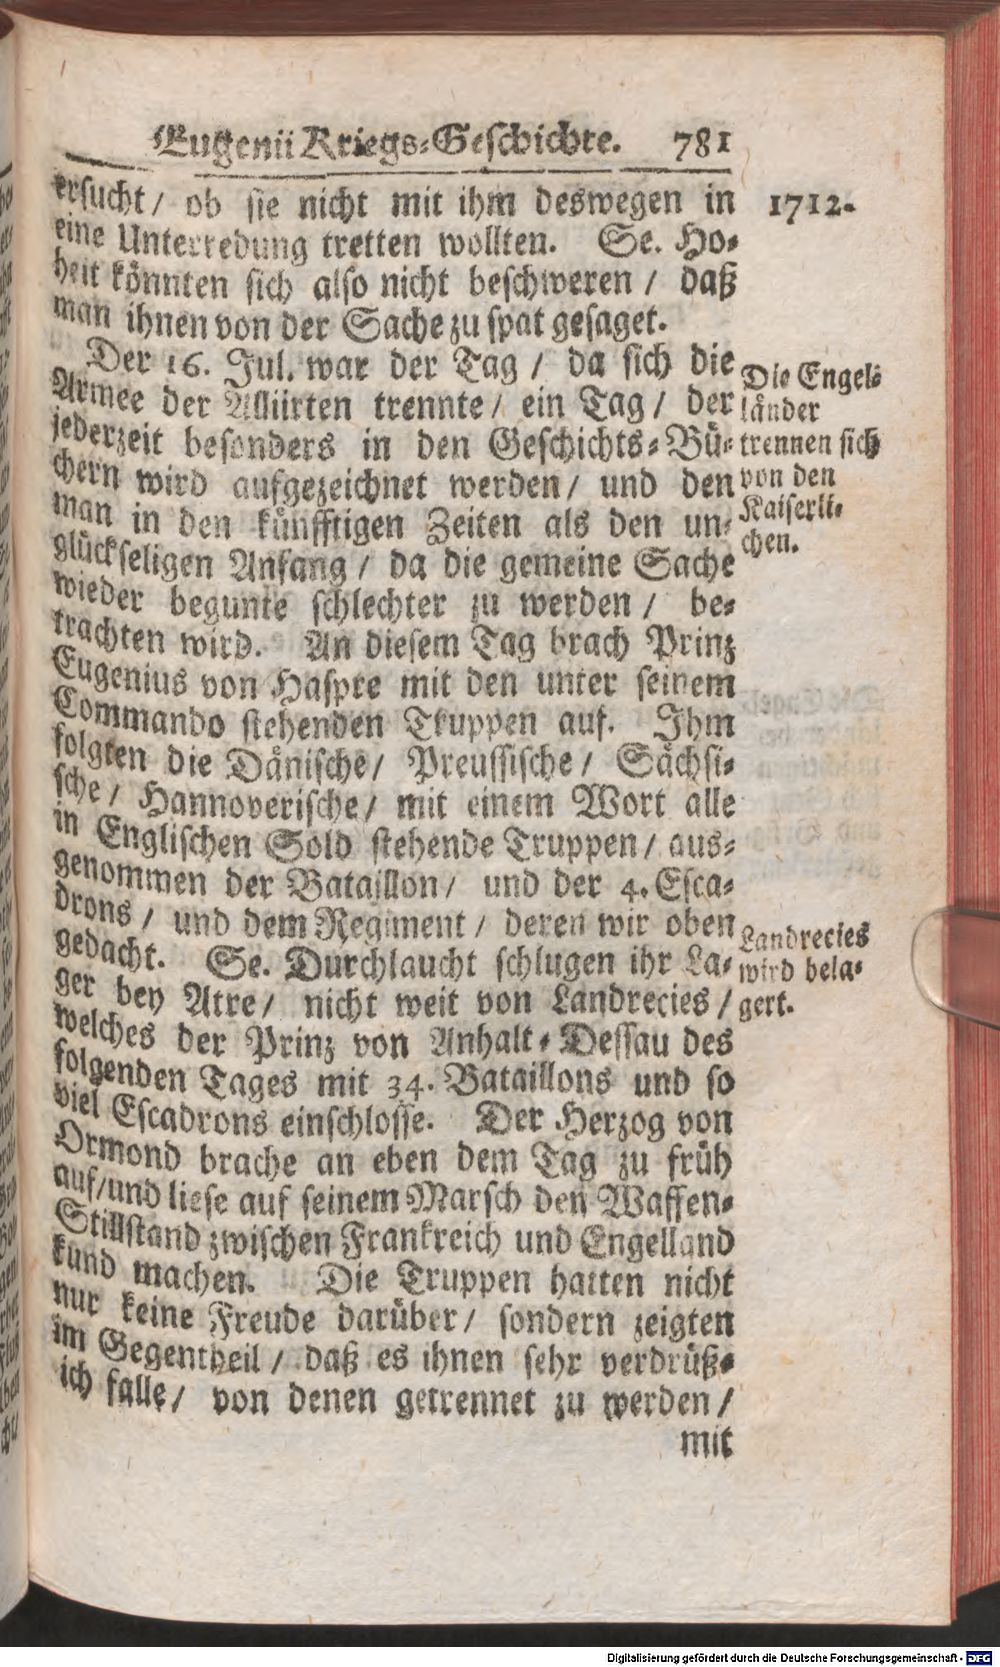 Eugenii Kriegs-Geschichte. 781
ersucht/ ob sie nicht mit ihm deswegen in
1712.
eine Unterredung tretten wollten. Se. Ho-
heit könnten sich also nicht beschweren / daß
man ihnen von der Sache zu spat gesaget.
Der 16. Jul. war der Tag / da sich die
Armee der Alliirten trennte/ ein Tag/ der
jederzeit besonders in den Geschichts-Bü-
chern wird aufgezeichnet werden/ und den
man in den künfftigen Zeiten als den un-
glückseligen Anfang / da die gemeine Sache
wieder begunte schlechter zu werden / be-
trachten wird. An diesem Tag brach Prinz
Eugenius von Haspre mit den unter seinem
Commando stehenden Truppen auf. Ihm
folgten die Dänische/ Preussische/ Sächsi-
sche/ Hannoverische/ mit einem Wort alle
in Englischen Sold stehende Truppen/ aus-
genommen der Bataillon/ und der 4. Esca-
drons / und dem Regiment / deren wir oben
gedacht. Se. Durchlaucht schlugen ihr La-
ger bey Atre/ nicht weit von Landrecies /
welches der Prinz von Anhalt-Dessau des
folgenden Tages mit 34. Bataillons und so
viel Escadrons einschlosse. Der Herzog von
Ormond brache an eben dem Tag zu früh
auf/und liese auf seinem Marsch den Waffen-
Stillstand zwischen Frankreich und Engelland
kund machen. Die Truppen hatten nicht
nur keine Freude darüber/ sondern zeigten
im Gegentheil / daß es ihnen sehr verdrüß-
ich falle/ von denen getrennet zu werden/
mit
Die Engel-
länder
trennen sich
von den
Kaiserli-
chen.
Landrecies
wird bela-
gert.
Digitalisierung gefördert durch die Deutsche Forschungsgemeinschaft - DFG